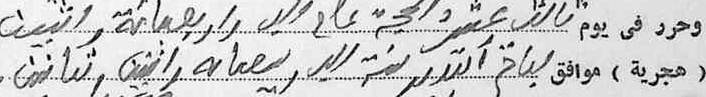 وحرر فى يوم ثالث عشر ذى الحجة عام الف واربعمائة واثنين
( هجرية ) موافق أكتوبر سنة الف وتسعمائة واثنين وثمانين